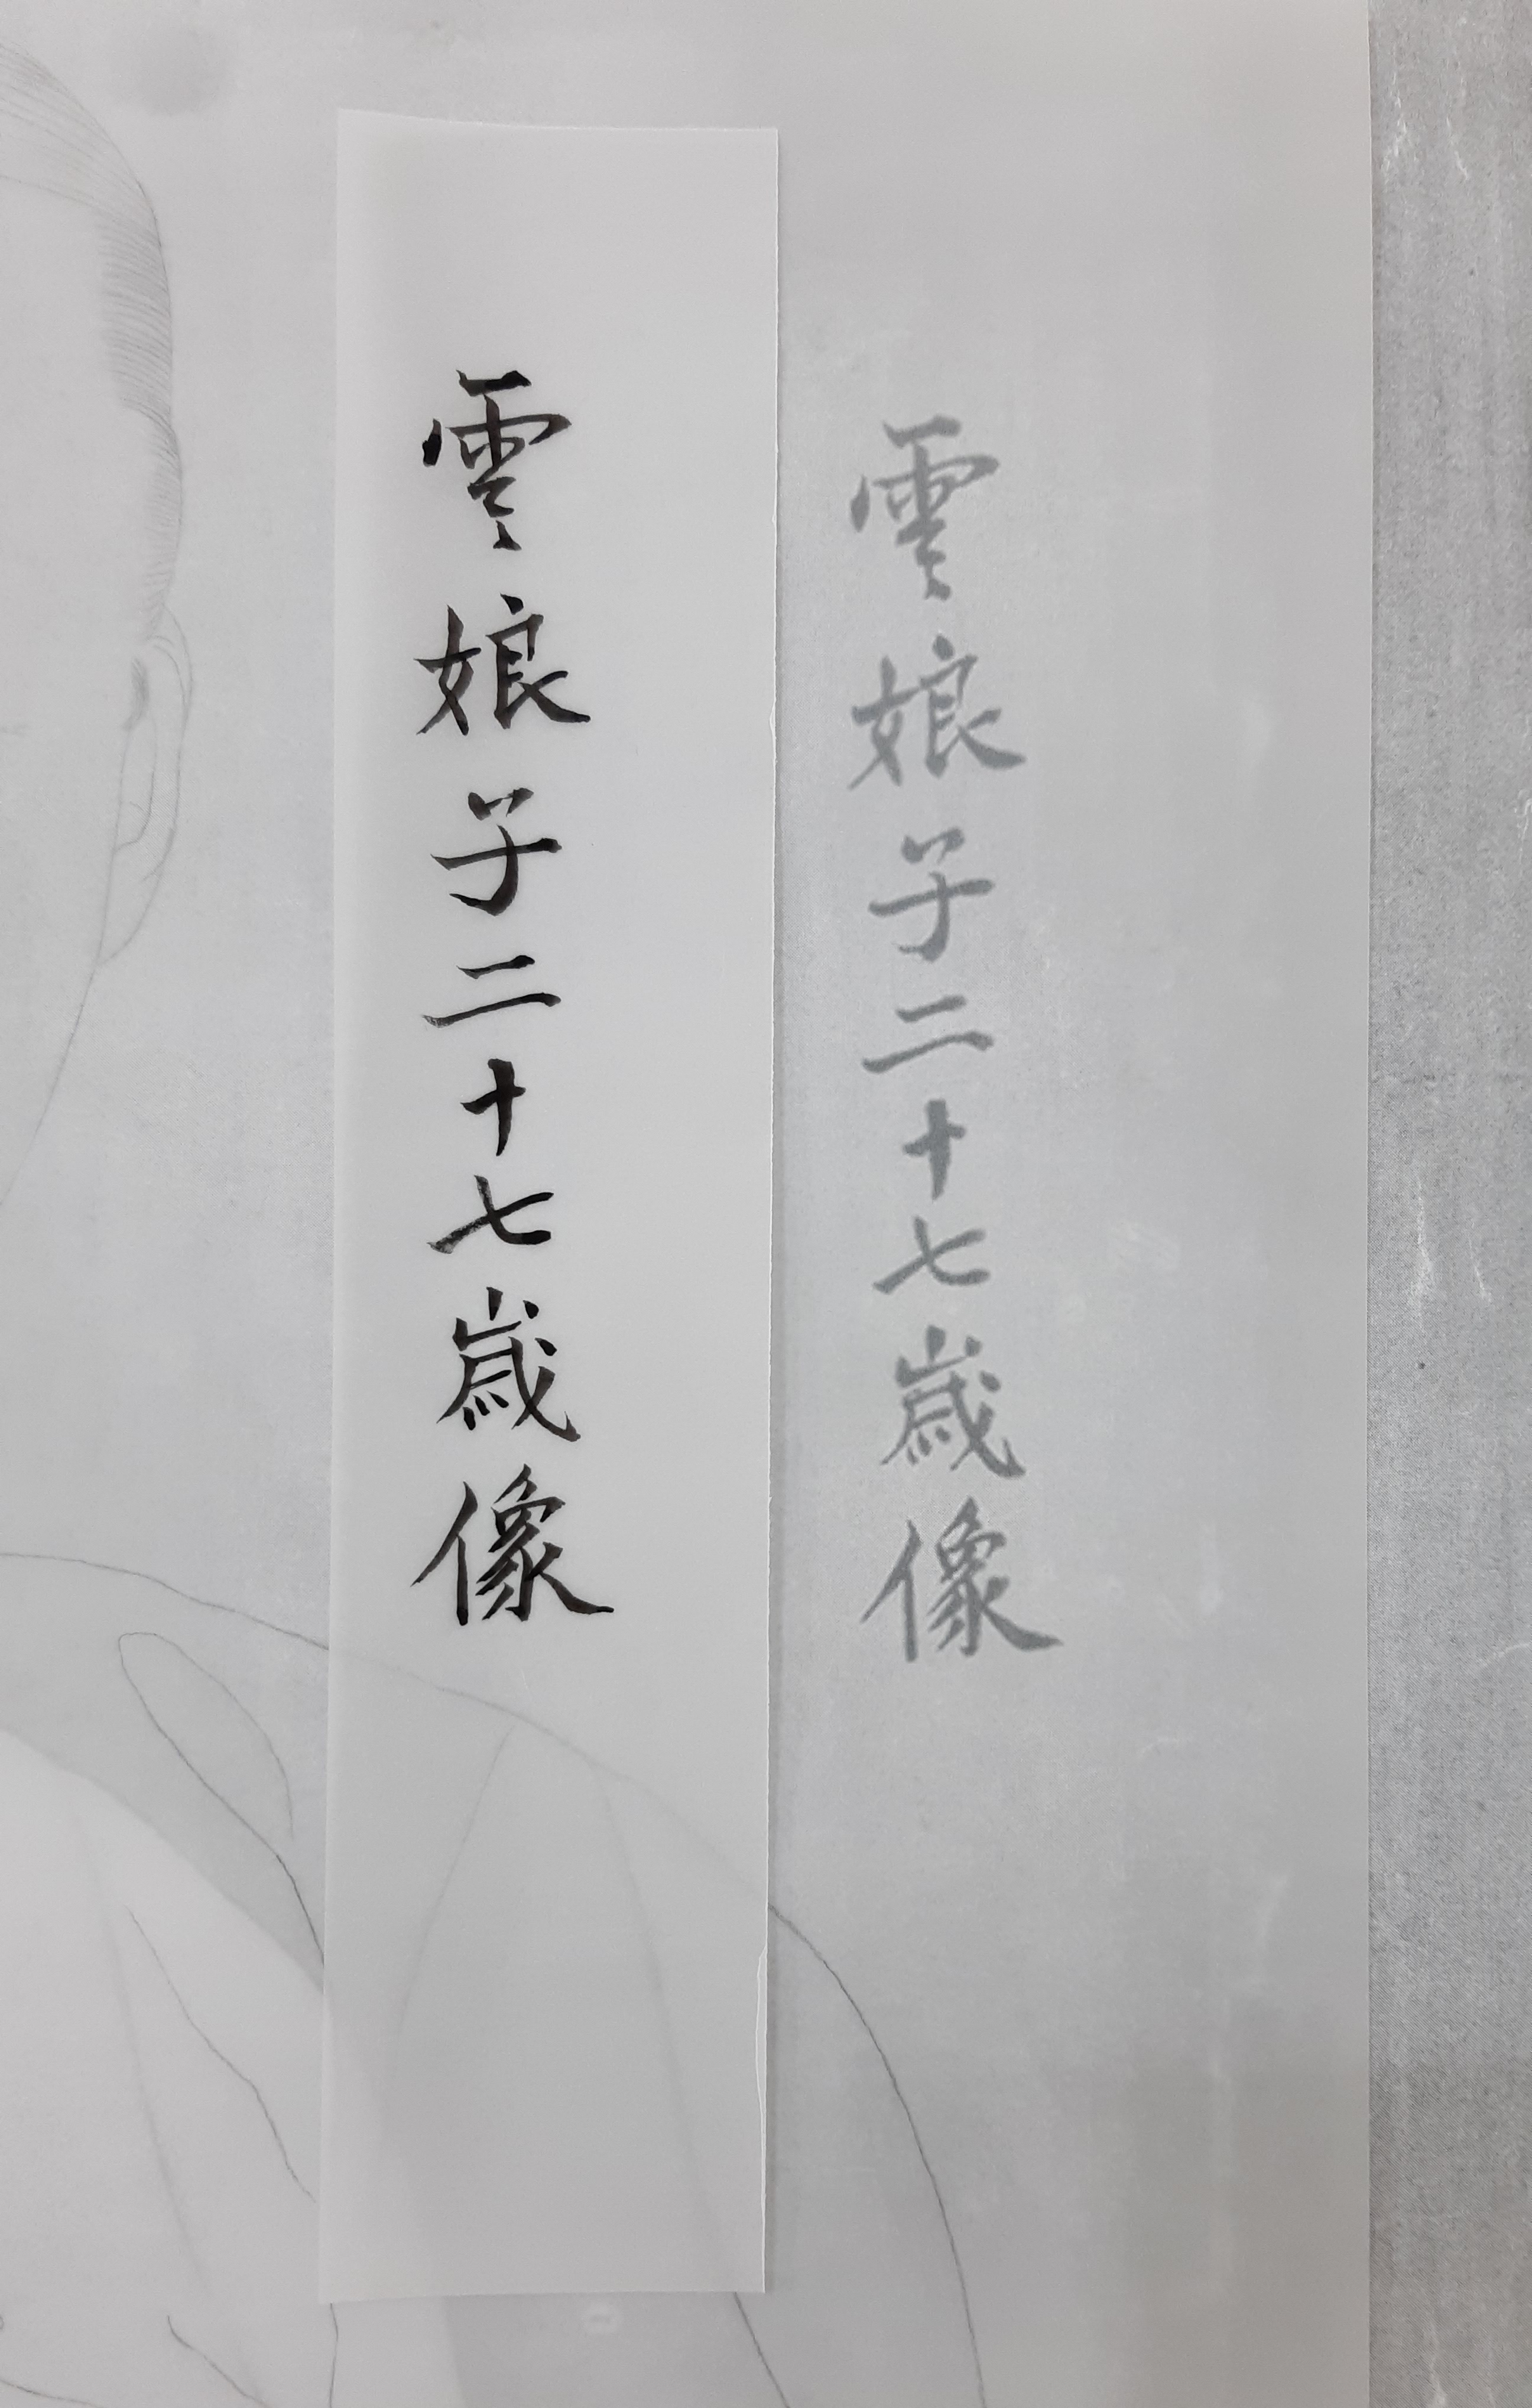 雲娘子二十七歲像
雲娘子二十七歲像